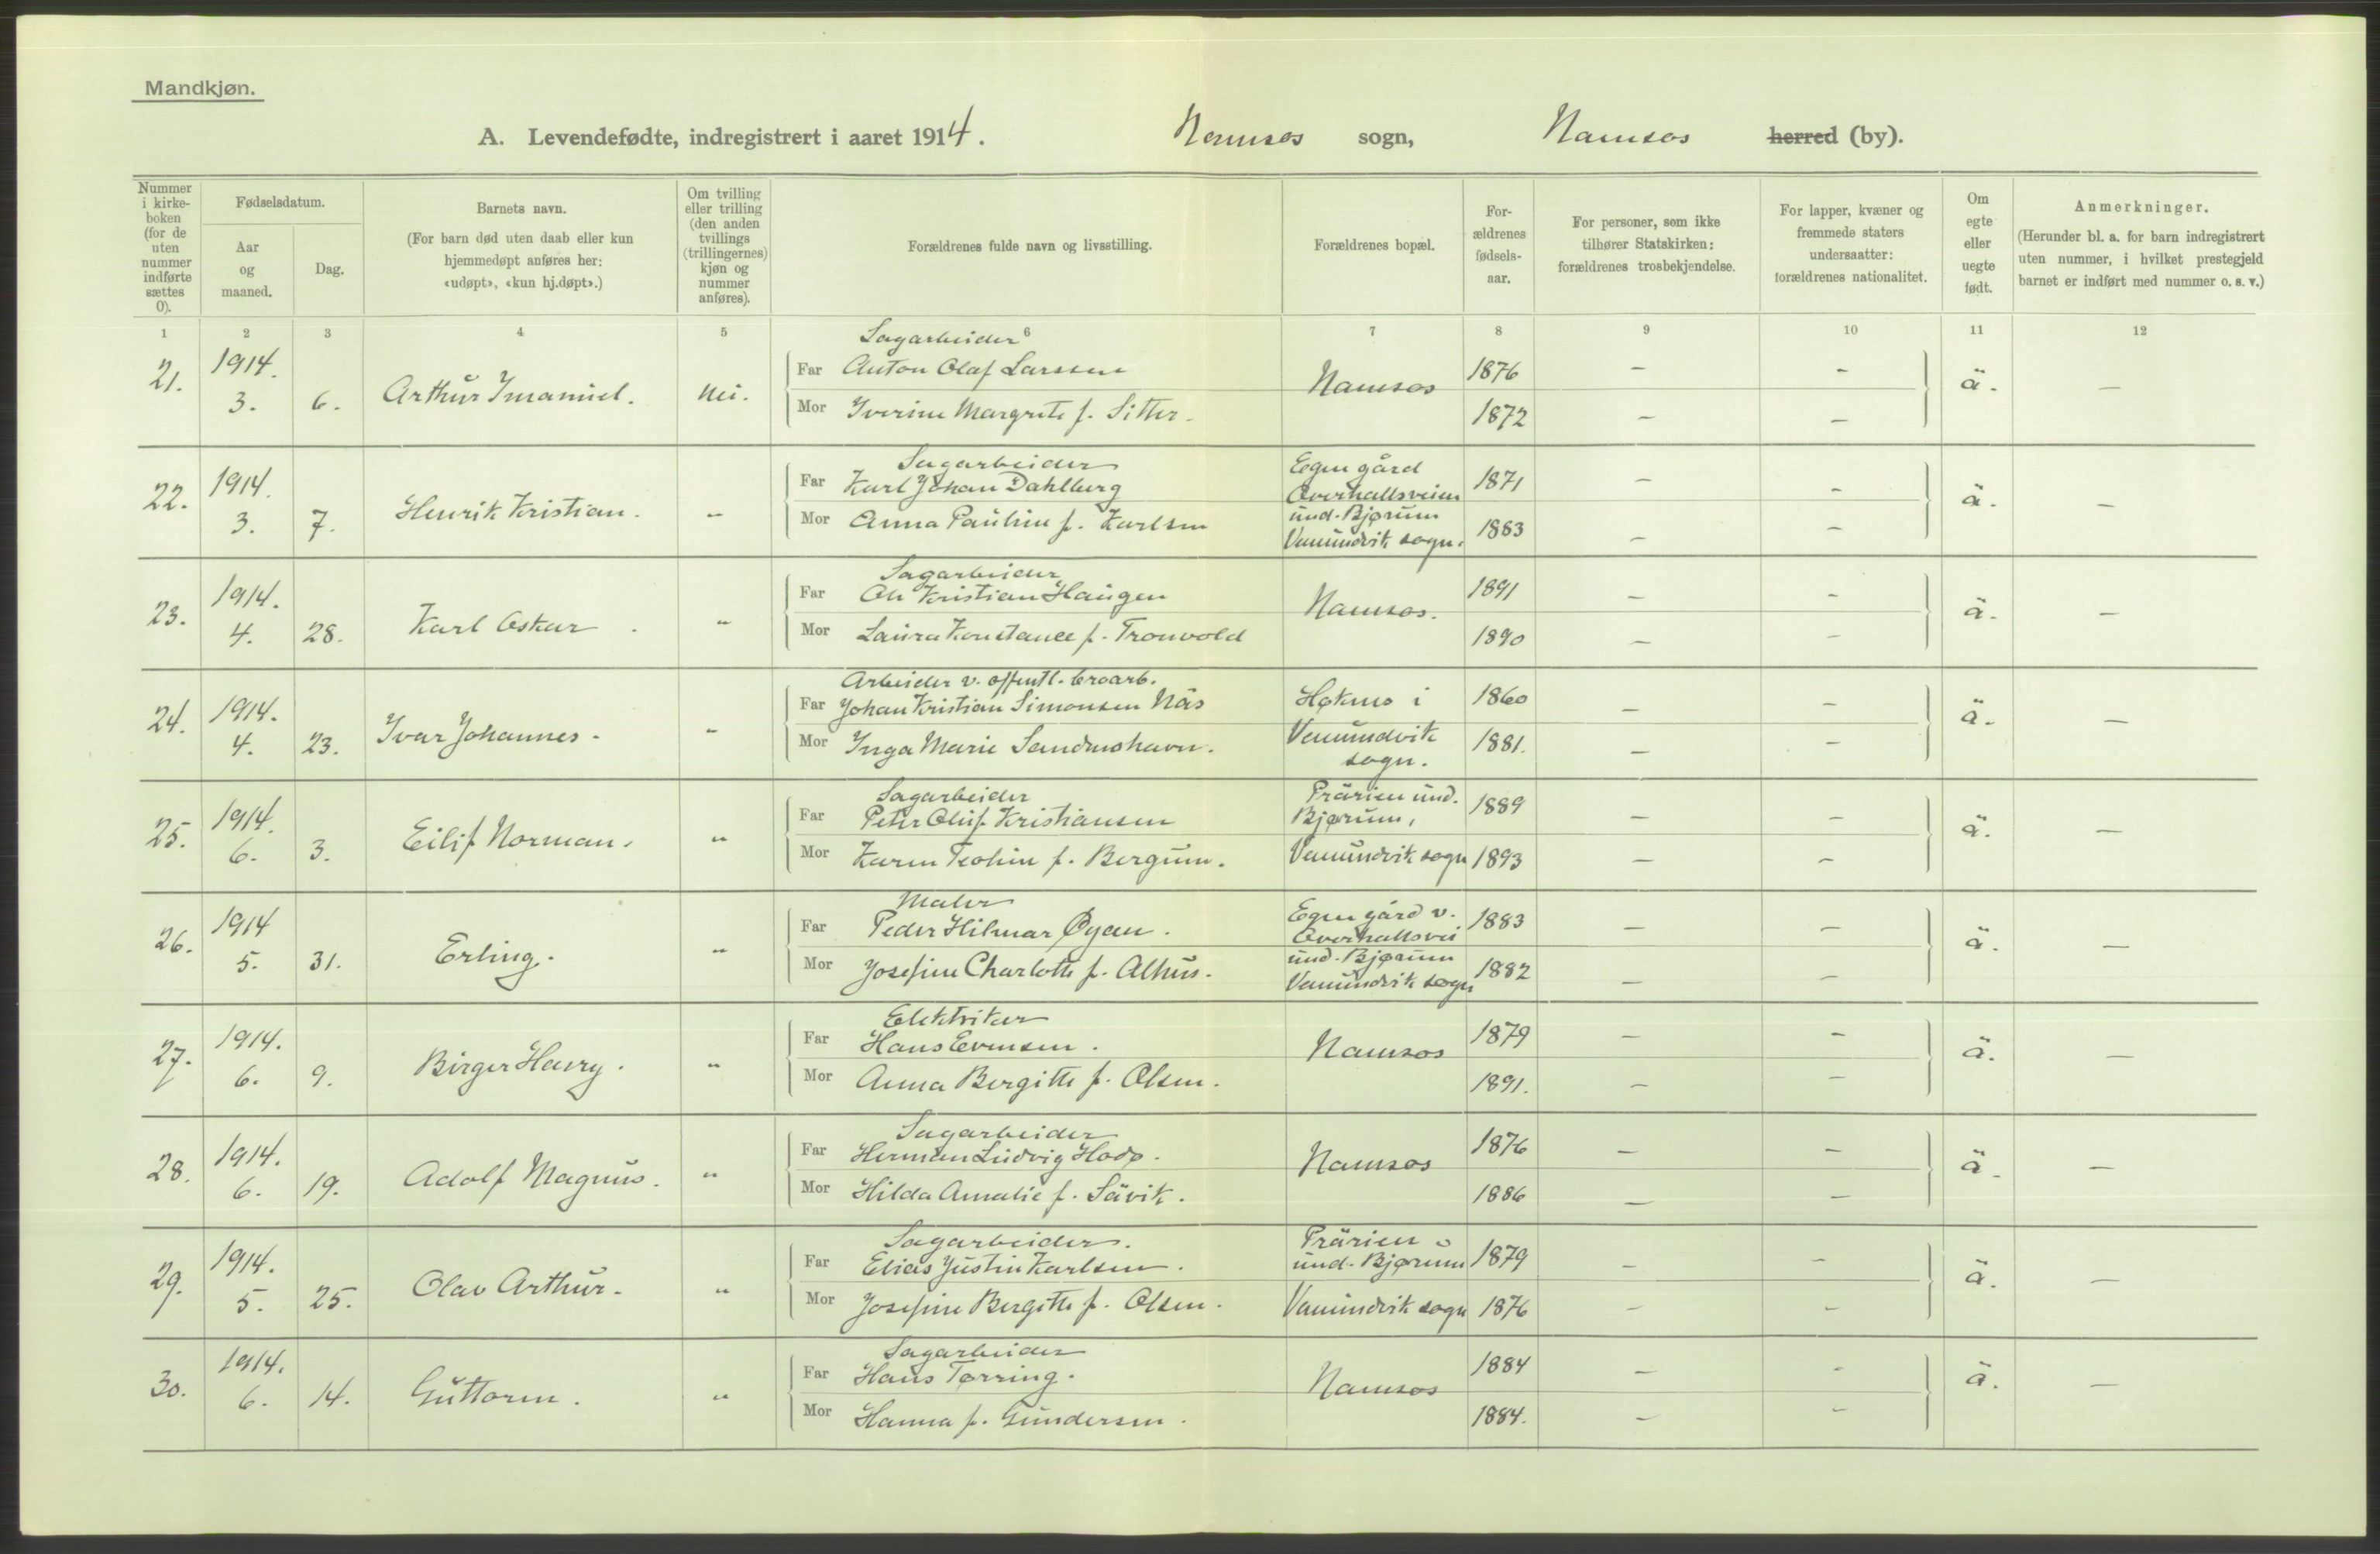 Mandkjøn.
A. Levendefødte, indregistrert i aaret 1914. Namsos sogn, Namsos herred (by).
Nummer i kirke-boken (for de uten nummer indførte sættes 0).
Fødselsdatum.
Aar og maaned.
Dag.
Barnets navn.
(For barn død uten daab eller kun hjemmedøpt anføres her: «udøpt», «kun hj.døpt».)
Om tvilling eller trilling (den anden tvillings (trillingernes) kjøn og nummer anføres).
Forældrenes fulde navn og livsstilling.
Forældrenes bopæl.
For-ældrenes fødsels-aar.
For personer, som ikke tilhører Statskirken: forældrenes trosbekjendelse.
For lapper, kvæner og fremmede staters undersaatter: forældrenes nationalitet.
Om egte eller uegte født.
Anmerkninger.
(Herunder bl. a. for barn indregistrert uten nummer, i hvilket prestegjeld barnet er indført med nummer o. s. v.)
1 2 3 4 5 6 7 8 9 10 11 12
Sagarbeider
21. 1914. 3. 6. Arthur Imanuel. nei. Far Anton Olaf Larssen Namsos 1876 – – ä. –
Mor Iverine Margrete f. Sitter. 1872 – –
Sagarbeider
22. 1914. 3. 7. Henrik Kristian. „ Far Karl Johan Dahlberg Egen gård Overhallsveien 1871 – – ä. –
Mor Anna Pauline f. Karlsen und. Bjørum Vemundvik sogn. 1883 – –
Sagarbeider
23. 1914. 4. 28. Karl Oskar. „ Far Ole Kristian Haugen Namsos. 1891 – – ä. –
Mor Laura Konstance f. Tronvold 1890 – –
Arbeider v. offentl. broarb.
24. 1914. 4. 23. Ivar Johannes. „ Far Johan Kristian Simonsen Näs i 1860 – – ä. –
Mor Inga Marie Vemundvik sogn. 1881. – –
Sagarbeider
25. 1914. 6. 3. Eilif Norman. „ Far Peter Oluf Kristiansen Prärien und. Bjørum, 1889 – – ä. –
Mor Karen f. Bergum. Vemundvik sogn 1893 – –
Maler
26. 1914 5. 31. Erling. „ Far Peder Hilmar Øyen. Egen gård v. Overhallsvei 1883 – – ä. –
Mor Josefine Charlotte f. Alhus. und. Bjørum Vemundvik sogn 1882 – –
Elektriker
27. 1914. 6. 9. Birger Henry. „ Far Hans Evensen. Namsos 1879 – – ä. –
Mor Anna Bergitte f. Olsen. 1891. – –
Sagarbeider
28. 1914. 6. 19. Adolf Magnus. „ Far Herman Ludvig Namsos 1876 – – ä. –
Mor Hilda Amalie f. Sävik. 1886 – –
Sagarbeider.
29. 1914. 5. 25. Olav Arthur. „ Far Elias Justin Karlsen. Prärien und. Bjørum 1879 – – ä. –
Mor Josefine Bergitte f. Olsen. Vemundvik sogn 1876 – –
Sagarbeider
30. 1914. 6. 14. Guttorm. „ Far Hans Tørring. Namsos 1884 – – ä. –
Mor Hanna f. Gundersen. 1884. – –